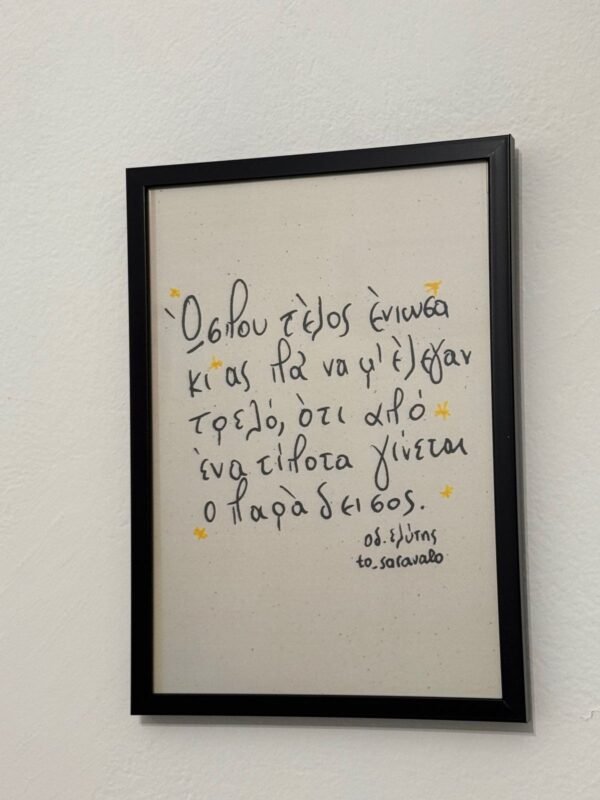 Ώσπου τέλος ένιωσα
κι ας πά' να μ' έλεγαν
τρελό, ότι από
ένα τίποτα γίνεται
ο παράδεισος.
οδ. ελύτης
to_saravalo